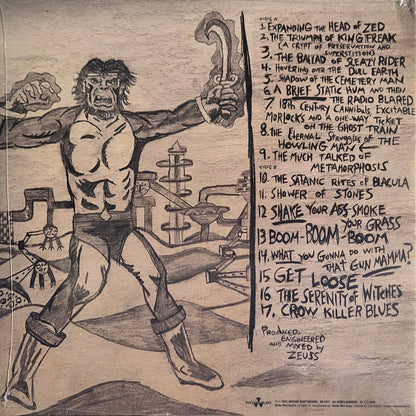 SIDE A
1. EXPANDING THE HEAD OF ZED
2. THE TRIUMPH OF KING FREAK
(A CRYPT OF PRESERVATION AND
SUPERSTITION)
3. THE BALLAD OF SLEAZY RIDER
4. HOVERING OVER THE DULL EARTH
5. SHADOW OF THE CEMETERY MAN
6. A BRIEF STATIC HUM AND THEN
THE RADIO BLARED
7. 18TH CENTURY CANNIBALS, EXCITABLE
MORLOCKS AND A ONE-WAY TICKET
ON THE GHOST TRAIN
8. THE ETERNAL STRUGGLES OF THE
HOWLING MAN
9. THE MUCH TALKED OF
METAMORPHOSIS
SIDE B
10. THE SATANIC RITES OF BLACULA
11. SHOWER OF STONES
12 SHAKE YOUR ASS-SMOKE
YOUR GRASS
13 BOOM-BOOM-BOOM
14. WHAT YOU GONNA DO WITH
THAT GUN MAMMA?
15 GET LOOSE
16 THE SERENITY OF WITCHES
17. CROW KILLER BLUES
PRODUCED,
ENGINEERED
AND MIXED BY
ZEUSS